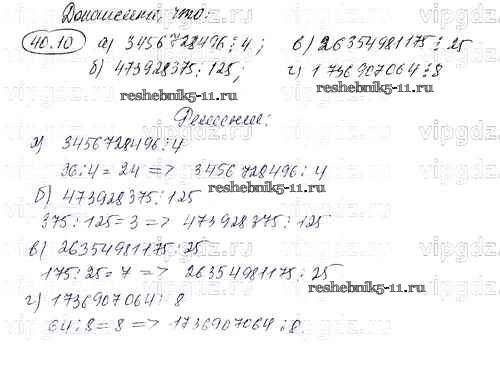 Доказать, что:
40.10 а) 3456728496⋮4; в) 26354981175⋮25
б) 473928375⋮125; г) 1736907064⋮8
reshebnik5-11.ru reshebnik5-11.ru
Решение:
а) 3456728496⋮4
96:4=24 => 3456728496⋮4
б) 473928375⋮125
reshebnik5-11.ru
375:125=3 => 473928375⋮125
в) 26354981175⋮25
175:25=7 => 26354981175⋮25
г) 1736907064⋮8
reshebnik5-11.ru
64:8=8 => 1736907064⋮8.